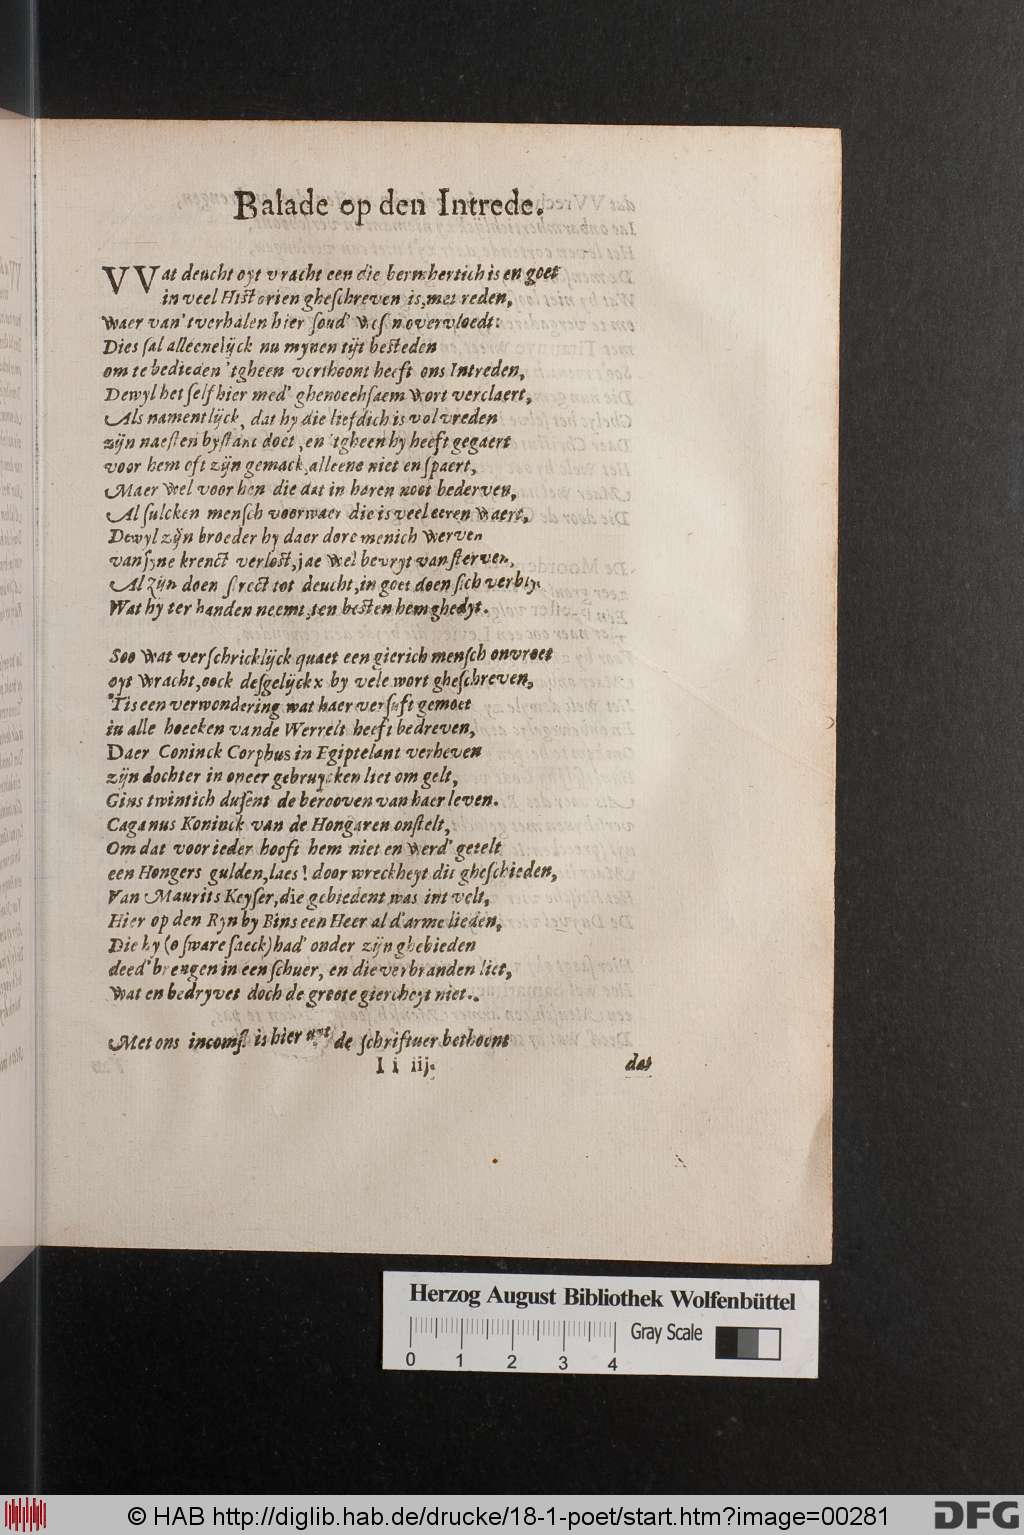 Balade op den Intrede.
VVat deucht oyt vracht een die bermhertich is en goet
in veel Historien gheſchreven is, met reden,
Waer van 't verhalen hier ſoud' Weſn overvloedt:
Dies ſal alleenelijck nu mynen tijt besteden
om te bedieden 'tgheen verthoont heeft ons Intreden,
Dewyl het ſelf hier med' ghenoeehſaem Wort verclaert,
Als namentlijck, dat hy die liefdich is vol vreden
zijn naeſten byſtant doet, en 'tgheen hy heeft gegaert
voor hem oft zijn gemack, alleene niet en ſpaert,
Maer Wel voor hen die dat in haren noot bederven,
Al ſulcken menſch voorwaer die is veel eeren Waert,
Dewyl zijn broeder hy daer dore menich Werven
van ſyne krenct verlost, jae Wel bevryt van ſterven,
Al Zijn doen ſtrect tot deucht, in goet doen ſich verbly.
Wat hy ter handen neemt, ten besten hem ghedyt.
Soo Wat verſchricklijck quaet een gierich menſch onvroet
oyt Wracht, oock deſgelijckx by vele wort gheſchreven,
'Tis een verwondering wat haer verſuft gemoet
in alle hoecken vande Werrelt heeft bedreven,
Daer Coninck Corphus in Egiptelant verheven
zijn dochter in oneer gebruycken liet om gelt,
Gins twintich duſent de berooven van haer leven.
Caganus Koninck van de Hongaren onſtelt,
Om dat voor ieder hooft hem niet en Werd' getelt
een Hongers gulden, laes! door wreckheyt dit gheſchieden,
Van Maurits Keyſer, die gebiedent was int velt,
Hier op den Ryn by Bins een Heer al d'arme lieden,
Die hy (o ſware ſaeck) had' onder zijn ghebieden
deed' brengen in een ſchuer, en die verbranden liet,
Wat en bedryvet doch de groote giercheyt niet.
Met ons incomſt is hier uyt de ſchriftuer bethoent
I i iij.
dat
Herzog August Bibliothek Wolfenbüttel
Gray Scale
0 1 2 3 4
© HAB http://diglib.hab.de/drucke/18-1-poet/start.htm?image=00281
DFG